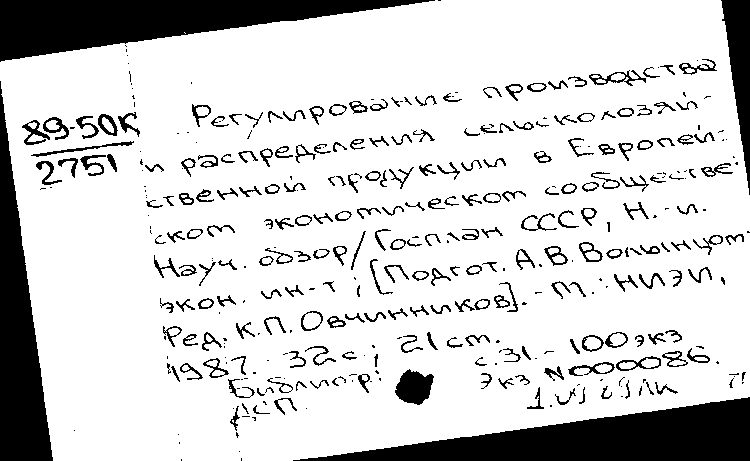 89-50К
2751
Регулирование производства
и распределения сельскохозяй-
ственной продукции в Европей-
ском экономическом сообществе:
Науч. обзор/Госплан СССР, Н.-и.
экон. ин-т; [Подгот. А.В. Волынцом
Ред. К.П. Овчинников].- М.: НИЭИ,
1987.- 32с; 21см.
Библиогр: с.31.- 100экз
ДСП. Экз N000086.